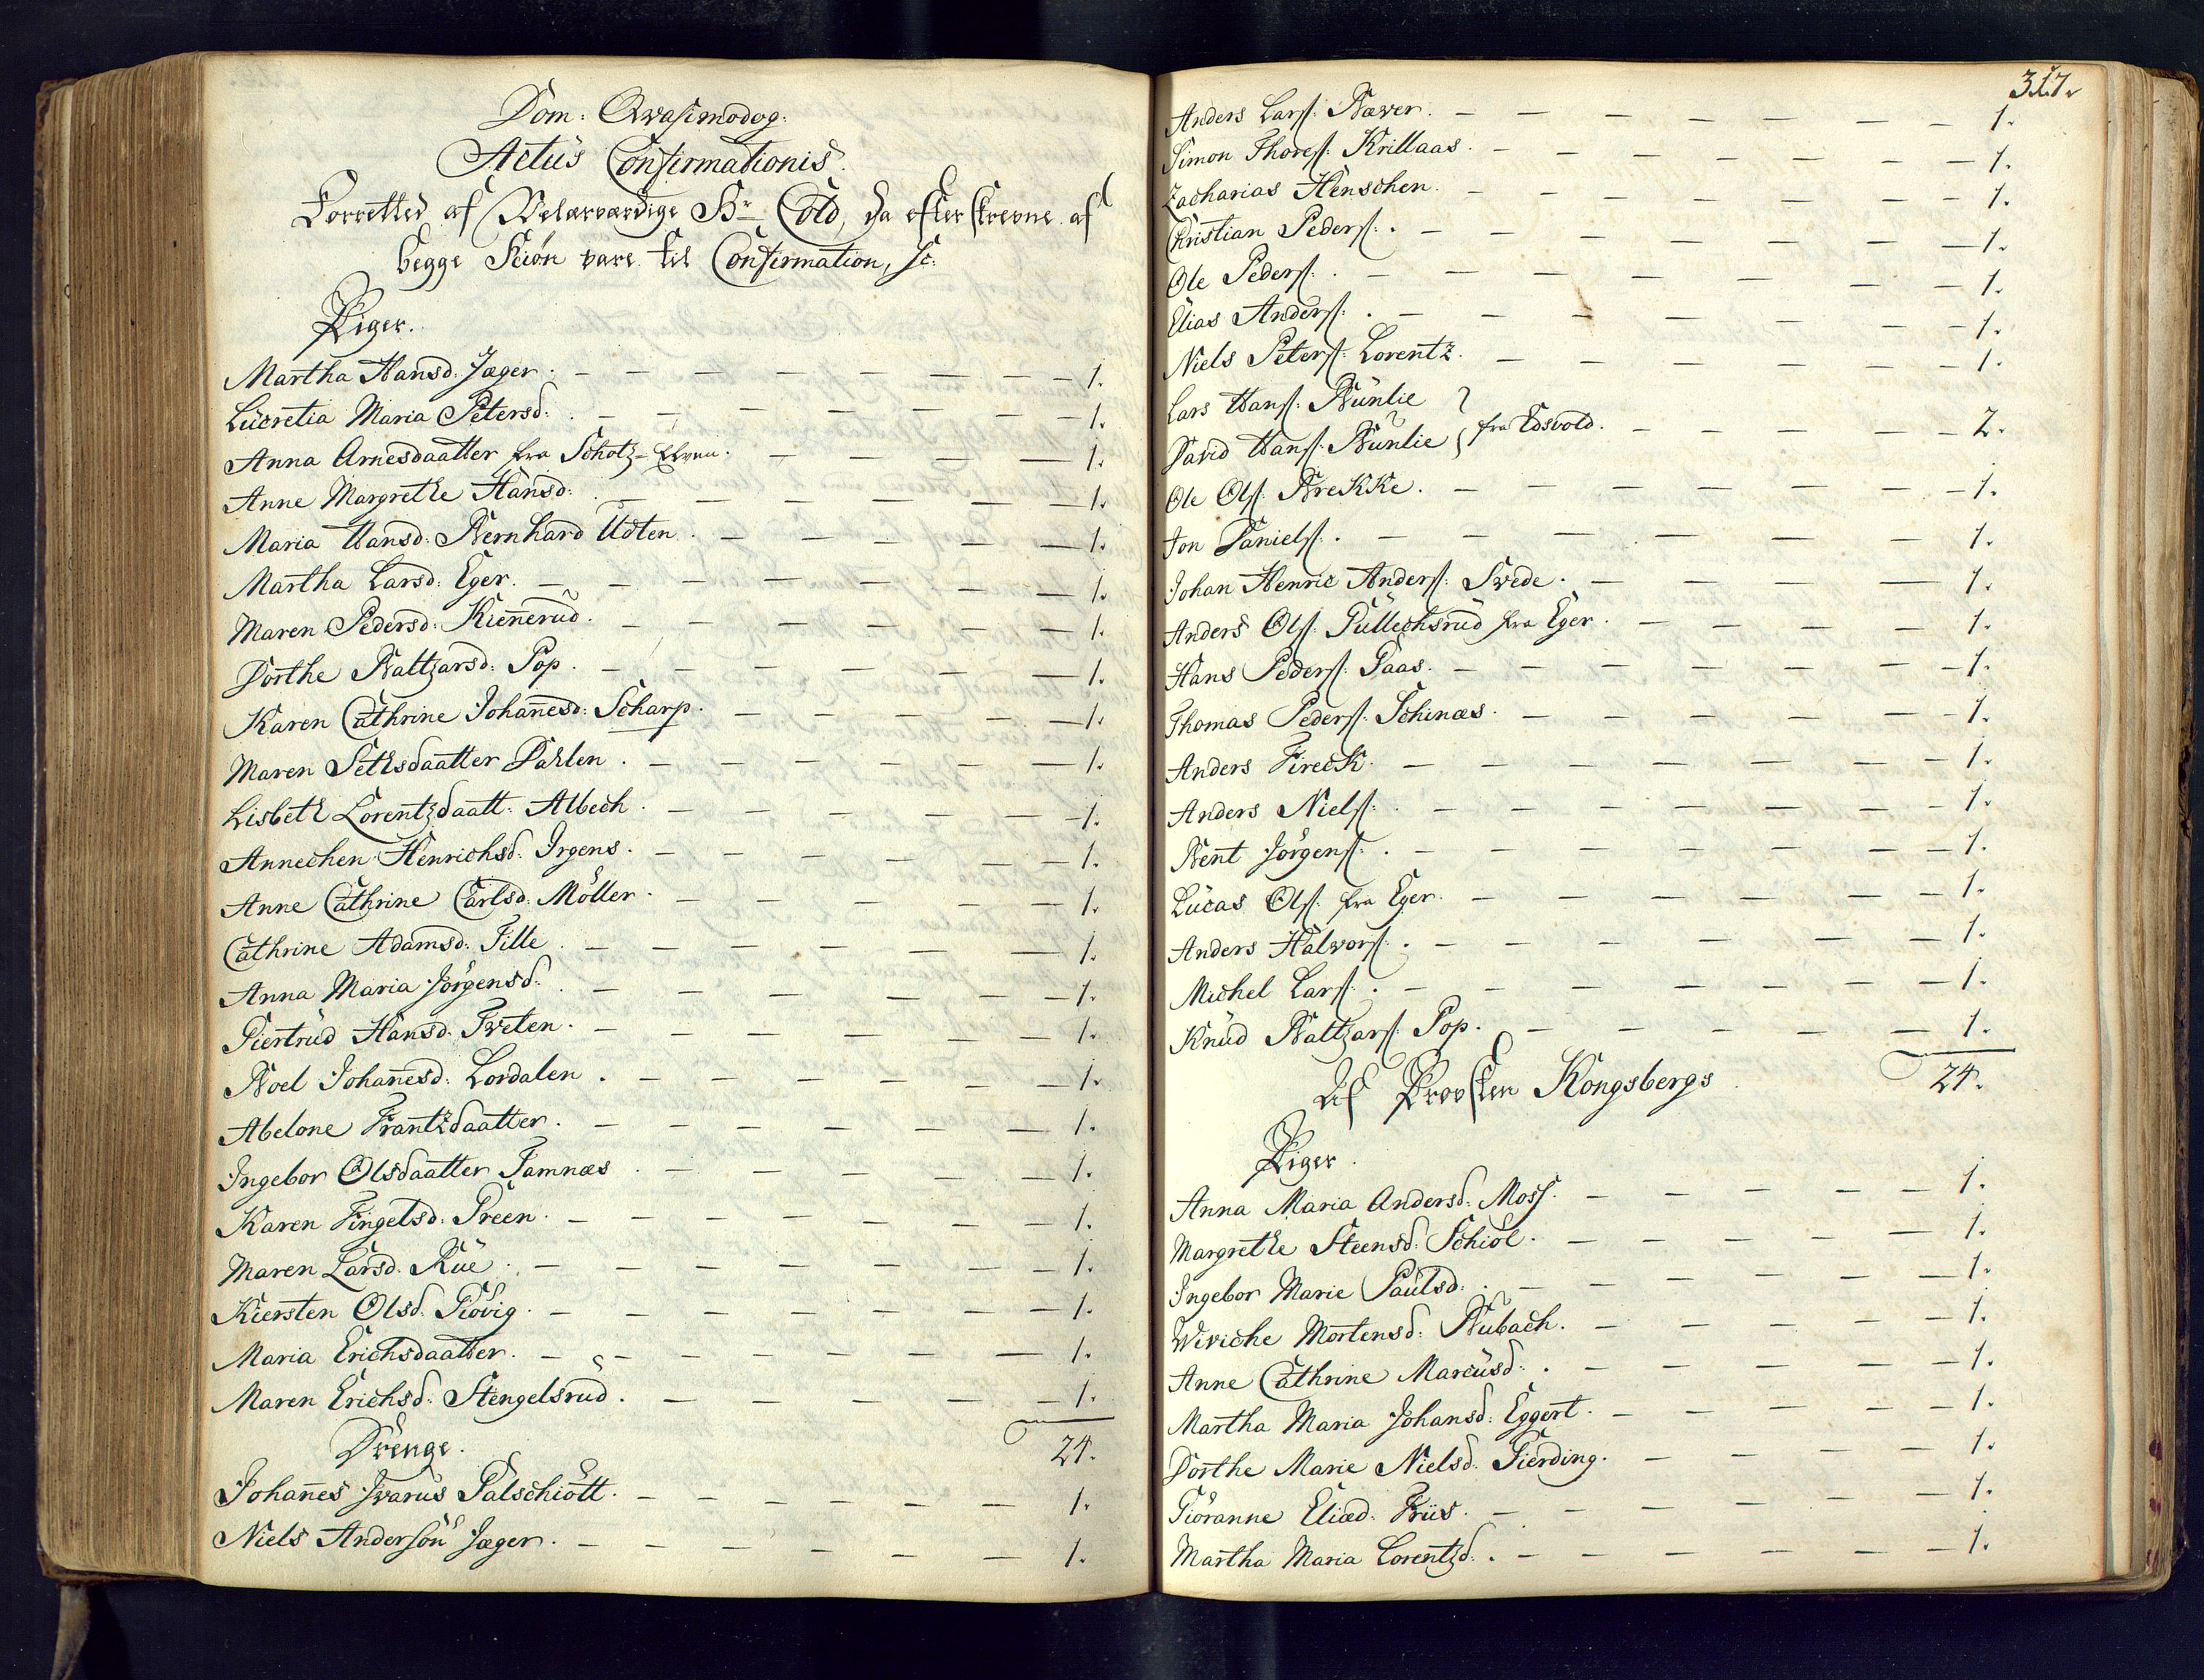 Dom: Qvasimodog:
Actus Confirmationis.
Forrettet af Velærværdige Hr Cold, da efterskrevne af
begge Kiøn vare til Confirmation, sc:
Piger.
Martha Hansd: Jæger. — 1.
Lucretia Maria Petersd: — 1.
Anna Arnesdaatter fra Schotz-Elven. — 1.
Anne Margrethe Hansd: — 1.
Maria Hansd: Bernhard Udten — 1.
Martha Larsd: Eger. — 1.
Maren Pedersd: Kiennerud. — 1.
Dorthe Baltzarsd: Pop. — 1.
Karen Cathrine Johannesd: Scharp. — 1.
Maren Sethsdaatter Dahlen. — 1.
Lisbeth Lorentzdaatt: Albech. — 1.
Annechen Henrichsd: Irgens. — 1.
Anne Cathrine Carlsd: Möller. — 1.
Cathrine Adamsd: Tille. — 1.
Anna Maria Jörgensd: — 1.
Giertrud Hansd: Tveten. — 1.
Boel Johannesd: Lordalen. — 1.
Abelone Frantzdaatter. — 1.
Ingebor Olsdaatter Tamnæs — 1.
Karen Fingelsd: Green. — 1.
Maren Larsd: Rue. — 1.
Kiersten Olsd: Giövig. — 1.
Maria Erichsdaatter. — 1.
Maren Erichsd: Stengelsrud. — 1.
24.
Drenge.
Johannes Ivarus Palschiött. — 1.
Niels Andersön Jæger. — 1.
317.
Anders Larss: Bæver. — 1.
Simon Thoress: Krillaas. — 1.
Zacharias Henschen. — 1.
Christian Peders: — 1.
Ole Peders: — 1.
Elias Anders: — 1.
Niels Peters: Lorentz. — 1.
Lars Hans: Bunlie
David Hans: Bunlie } fra Edsvold. — 2.
Ole Ols: Brekke. — 1.
Jon Daniels: — 1.
Johan Henric Anders: Svede. — 1.
Anders Ols: Gullechsrud fra Eger. — 1.
Hans Peders: Gaas. — 1.
Thomas Peders: Schinæs. — 1.
Anders Fireck. — 1.
Anders Niels: — 1.
Bent Jörgens: — 1.
Lucas Ols: fra Eger. — 1.
Anders Halvors: — 1.
Michel Lars: — 1.
Knud Baltzars: Pop. — 1.
24.
Af Provsten Kongsbergs
Piger.
Anna Maria Andersd: Moss. — 1.
Margrethe Steensd: Schiöl. — 1.
Ingebor Marie Paulsd: — 1.
Wiviche Mortensd: Bubach. — 1.
Anne Cathrine Marcusd: — 1.
Martha Maria Johansd: Eggert. — 1.
Dorthe Marie Nielsd: Gierding. — 1.
Giöranne Eliæd: Friis. — 1.
Martha Maria Lorentzd: — 1.